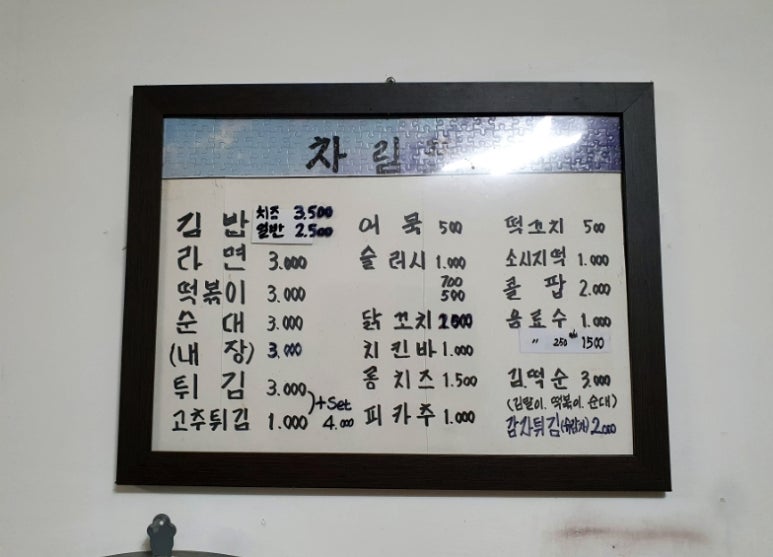 차림
김밥 치즈 3.500
일반 2.500
라면 3.000
떡볶이 3.000
순대 3.000
(내장) 3.000
튀김 3.000
고추튀김 1.000
)+Set
4.000
어묵 500
슬러시 1.000
700
500
닭꼬치 2500
치킨바 1.000
롱치즈 1.500
피카츄 1.000
떡꼬치 500
소시지떡 1.000
콜팝 2.000
음료수 1.000
〃 250 1500
김.떡순 3.000
(김말이.떡볶이.순대)
감자튀김 2.000